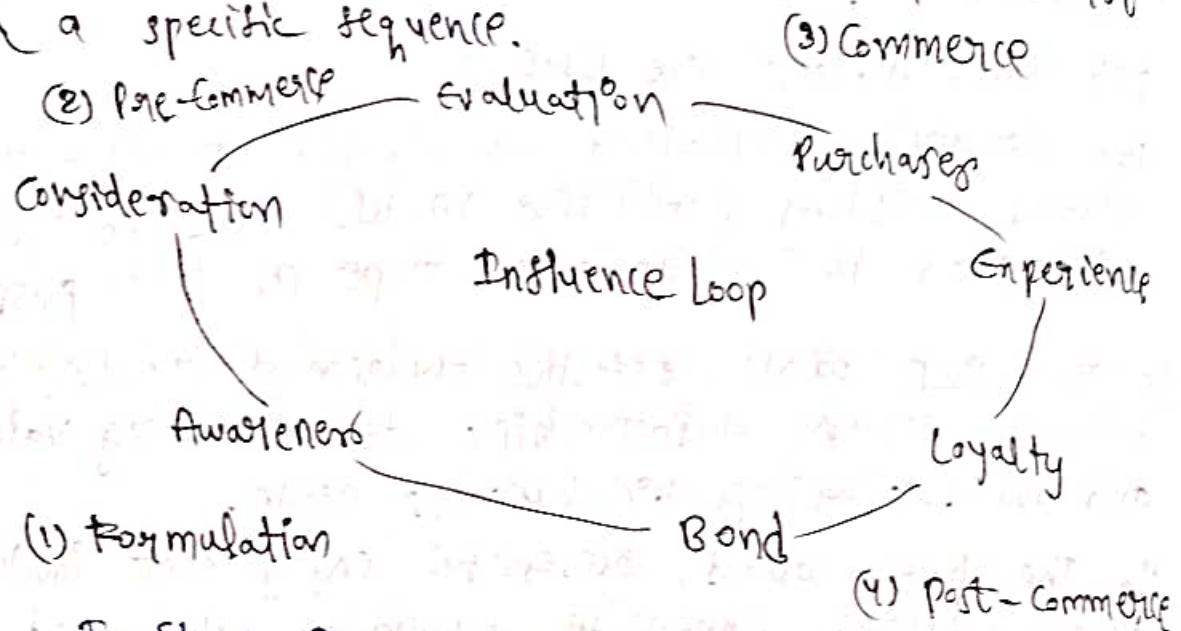 a specific sequence.
(3) Commerce
(2) Pre-Commerce
Evaluation
Purchases
Consideration
Influence Loop
Experience
Awareness
Loyalty
(1) Formulation
Bond
(4) Post-Commerce